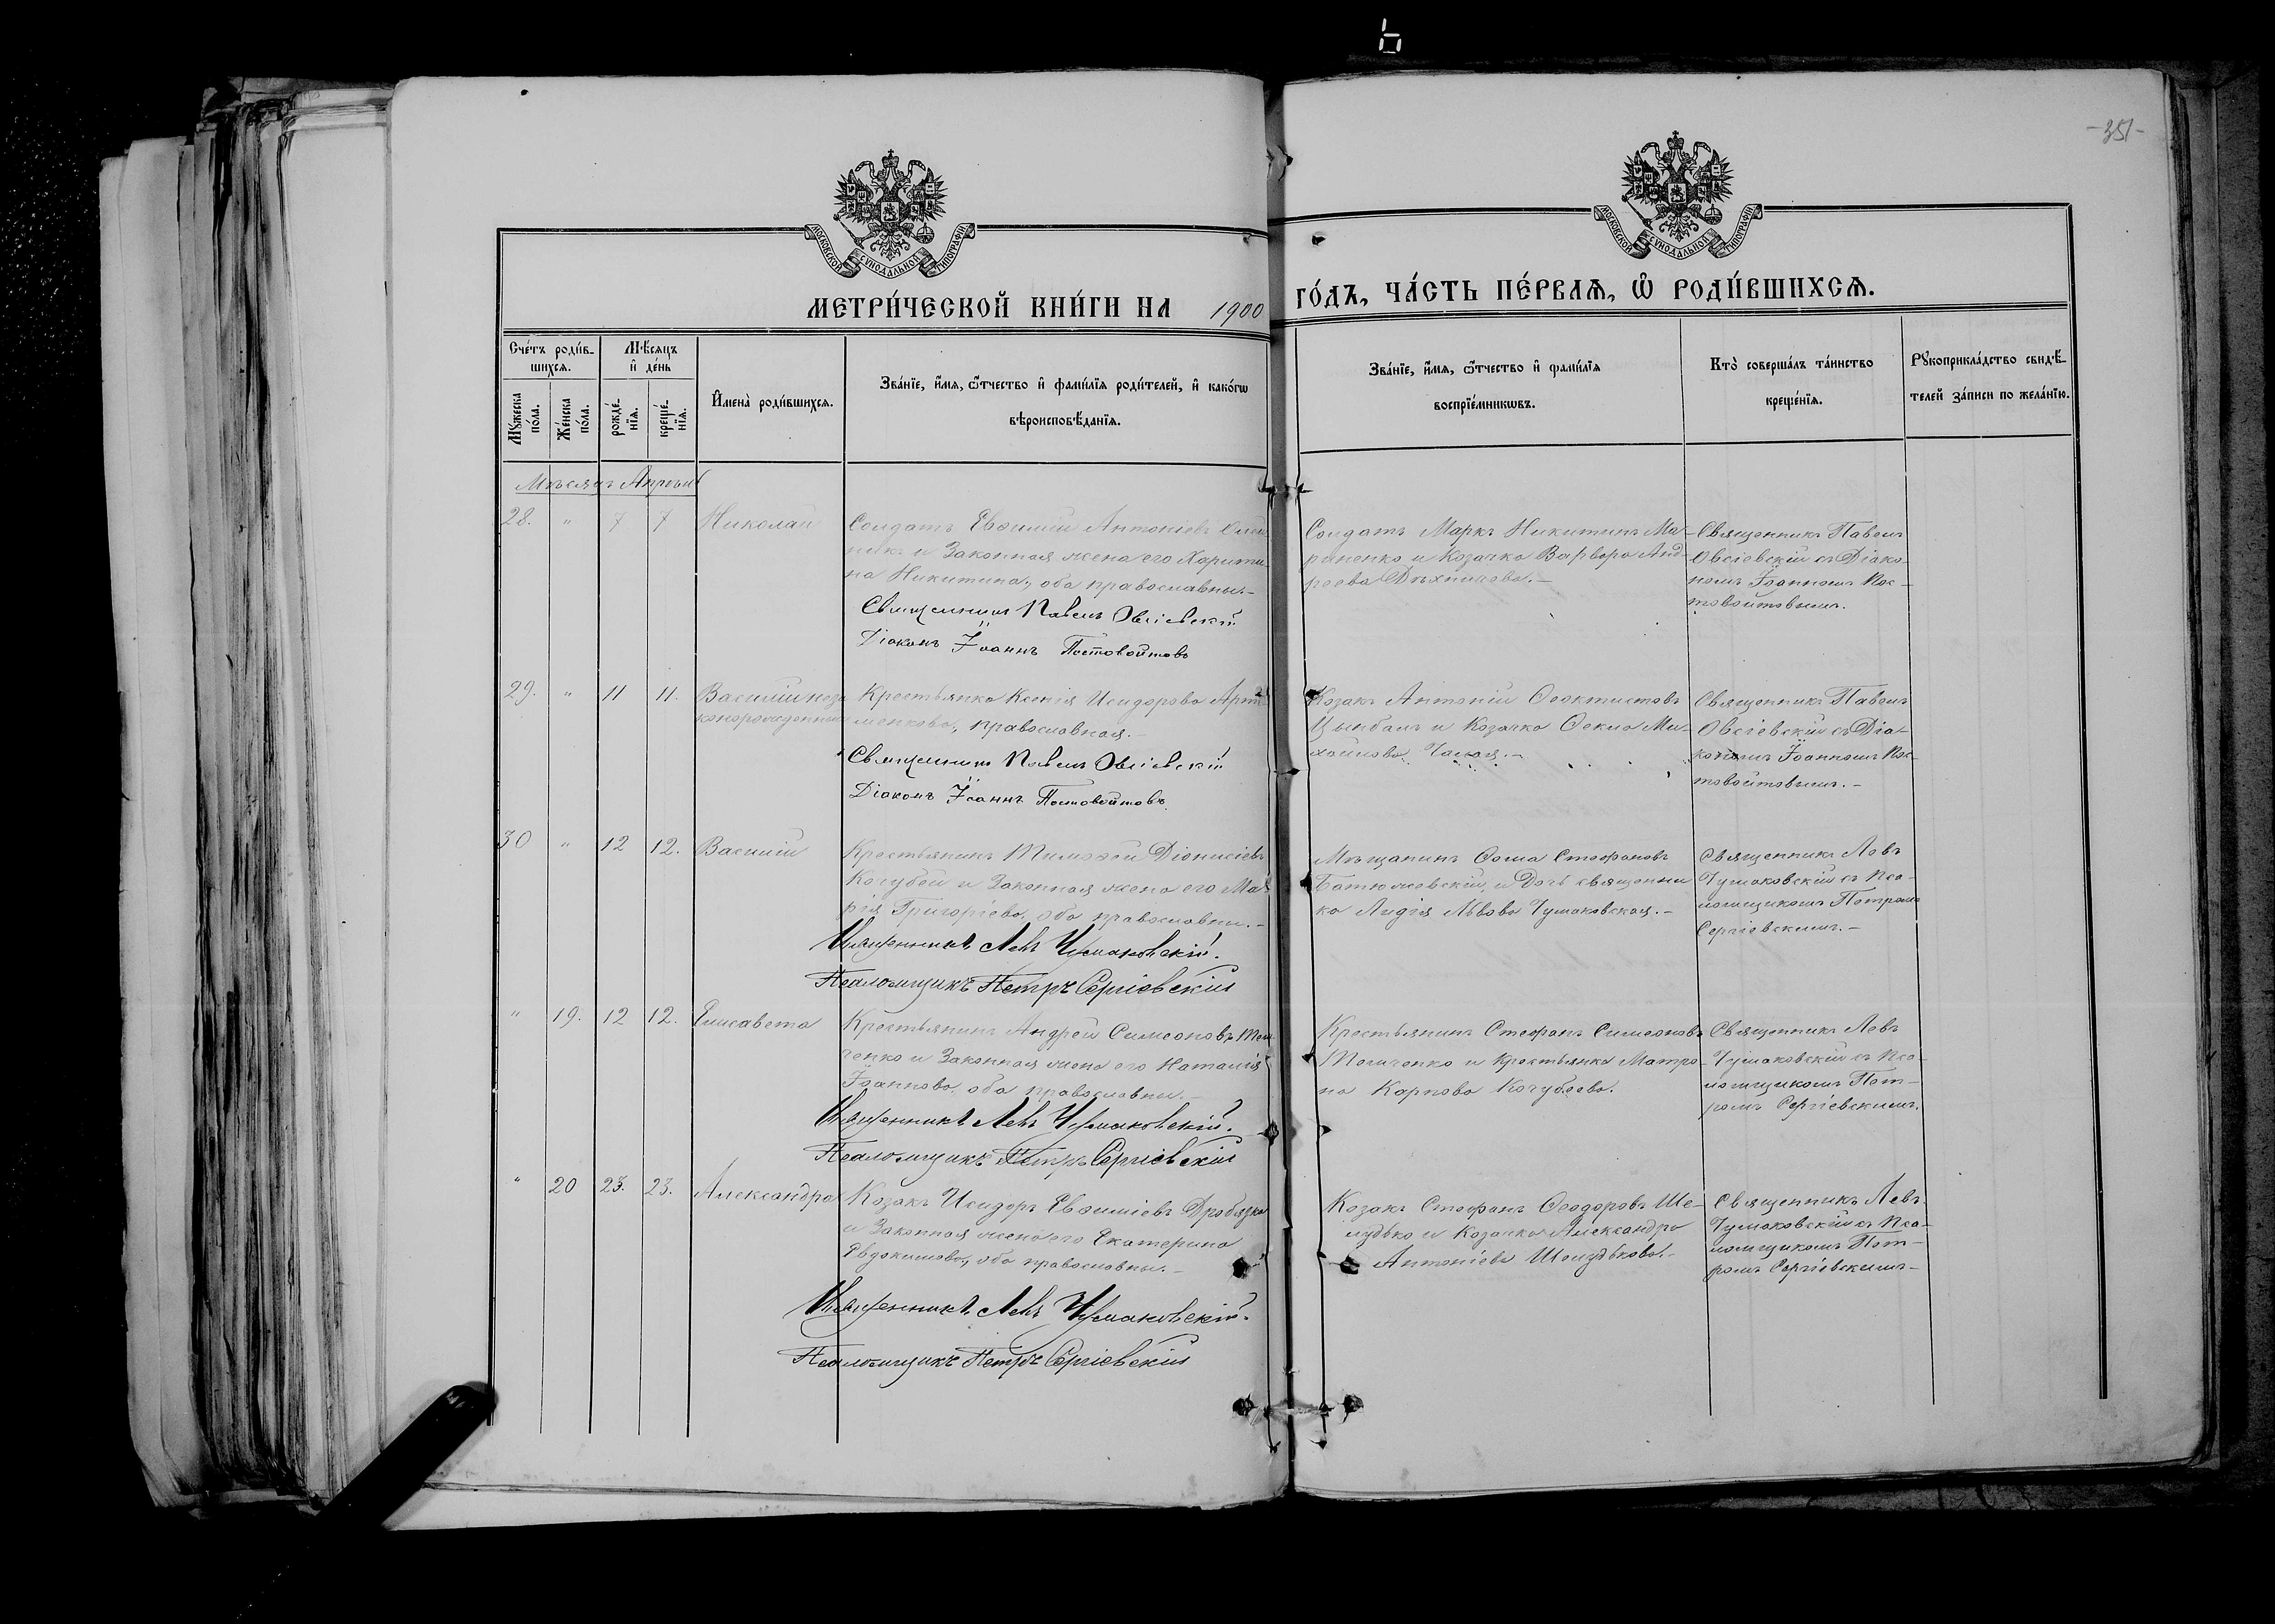 -351-
МОСКОВСКОЙ СѴНОДАЛЬНОЙ ТИПОГРАФІИ
МОСКОВСКОЙ СѴНОДАЛЬНОЙ ТИПОГРАФІИ
МЕТРИ́ЧЕСКОЙ КНИ́ГИ НА 1900 ГО́ДЪ, ЧА́СТЬ ПЕ́РВАѦ, Ѡ҆ РОДИ́ВШИХСѦ.
Сче́тъ роди́в-
шихсѧ.
Мѣ́сѧцъ
и҆ де́нь
Мꙋ́жеска
по́ла.
Же́нска
по́ла.
рожде́-
нїѧ.
креще́-
нїѧ.
И҆мена̀ роди́вшихсѧ.
Зва́нїе, и҆́мѧ, ѻ҆́тчество и҆ фами́лїѧ роди́телей, и҆ како́гѡ
вѣроисповѣ́данїѧ.
Зва́нїе, и҆́мѧ, ѻ҆́тчество и҆ фами́лїѧ
воспрїе́мникѡвъ.
Кто̀ соверша́лъ та́инство
креще́нїѧ.
Рꙋкоприкла́дство свидѣ́-
телей за́писи по жела́нїю.
Мѣсяцъ Апрѣль
28. " 7 7 Николай
Солдатъ Евѳимій Антоніевъ Олей-
никъ и Законная жена его Харити-
на Никитина, оба православны.-
Священникъ Павелъ Овсіевскій
Діаконъ Іоаннъ Постовойтовъ
Солдатъ Маркъ Никитинъ Ма-
риненко и Козачка Варвара Анд-
реева
Священникъ Павелъ
Овсіевскій съ Діако-
номъ Іоанномъ Пос-
товойтовымъ.
29. " 11 11. Василій неза-
коннорожденный
Крестьянка Ксенія Исидорова Арте-
менкова, православная.-
Священникъ Павелъ Овсіевскій
Діаконъ Іоаннъ Постовойтовъ
Козакъ Антоній Ѳеоктистовъ
Цымбалъ и Козачка Ѳекла Ми-
хайлова
Священникъ Павелъ
Овсіевскій съ Діа-
кономъ Іоанномъ Пос-
товойтовымъ.-
30 " 12 12. Василій
Крестьянинъ Тимоѳей Діонисіевъ
Кочубей и Законная жена его Ма-
рія Григоріева, оба православны.-
Священникъ Левъ Чумаковскій.
Псаломщикъ Петръ Сергіевскій
Мѣщанинъ Ѳома Стефановъ
и Дочь священни
ка Лидія Львова Чумаковская.-
Священникъ Левъ
Чумаковскій съ Пса-
ломщикомъ Петромъ
Сергіевскимъ.-
" 19. 12 12. Елисавета
Крестьянинъ Андрей Симеоновъ Тем-
ченко и Законная жена его Наталія
Іоаннова, оба православны.-
Священникъ Левъ Чумаковскій.
Псаломщикъ Петръ Сергіевскій
Крестьянинъ Стефанъ Симеоновъ
Темченко и Крестьянка Матро-
на Карпова Кочубеева.
Священникъ Левъ
Чумаковскій съ Пса-
ломщикомъ Пет-
ромъ Сергіевскимъ.
" 20 23. 23. Александра
Козакъ Исидоръ Евѳиміевъ Дробязко
и Законная жена его Екатерина
Евдокимова, оба православны.-
Священникъ Левъ Чумаковскій.
Псаломщикъ Петръ Сергіевскій
Козакъ Стефанъ Ѳеодоровъ Ше-
лудько и Козачка Александра
Антоніева Шелудькова.-
Священникъ Левъ
Чумаковскій съ Пса-
ломщикомъ Пет-
ромъ Сергіевскимъ-